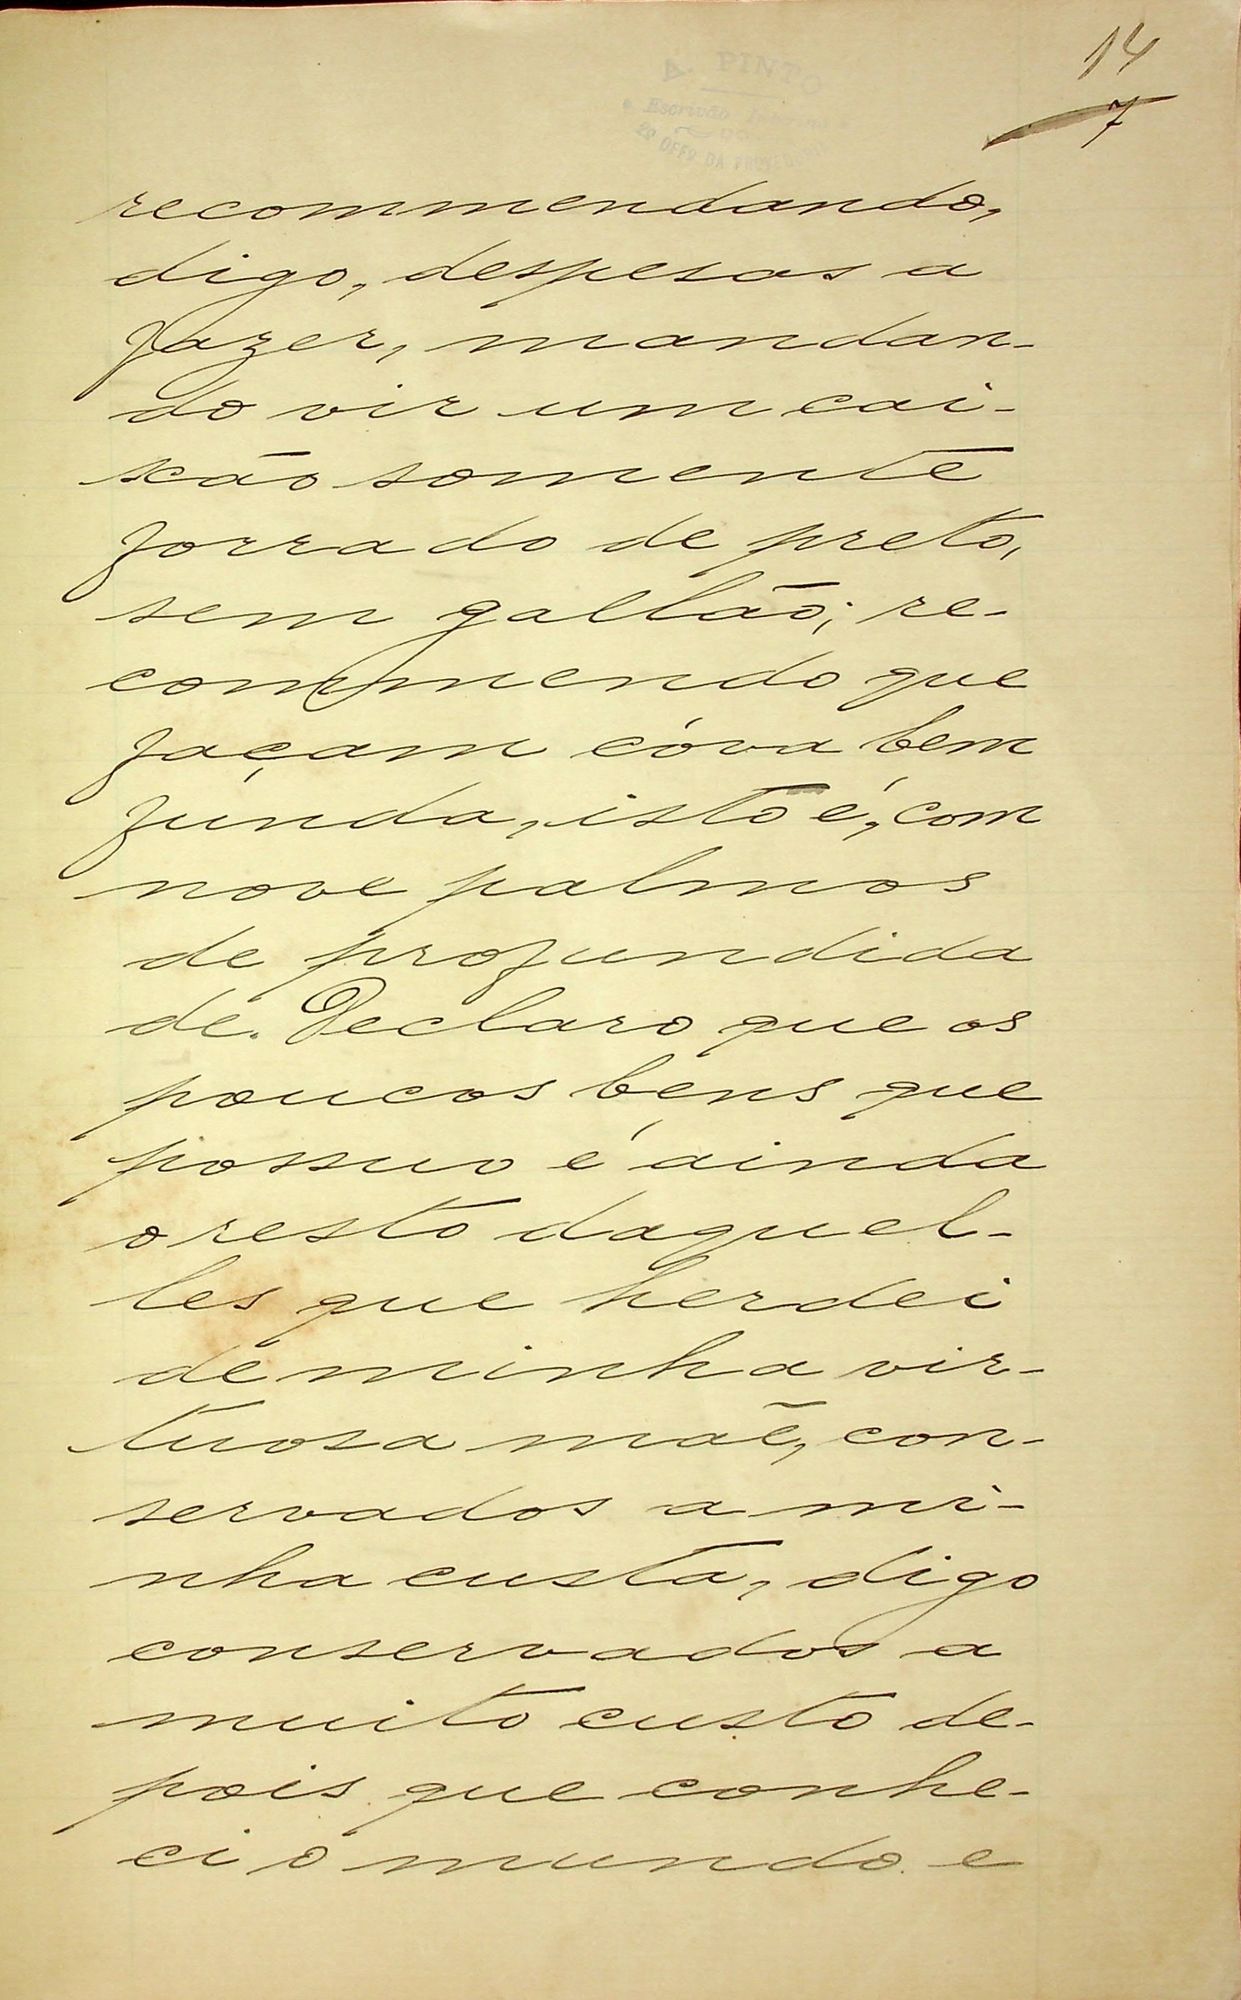 14
7
A. PINTO
Escrivão
2º OFFº DA PROVEDORIA
recommendando,
digo, despesas a
fazer, mandan-
do vir um cai-
xão somente
forrado de preto,
sem gallão; re-
commendo que
façam cóva bem
funda, isto é, com
nove palmos
de profundida
de. Declaro que os
poucos bens que
possuo é ainda
o resto daquel-
les que herdei
de minha vir-
tuosa mãe, con-
servados a mi-
nha custa, digo
conservados a
muito custo de-
pois que conhe-
ci o mundo e